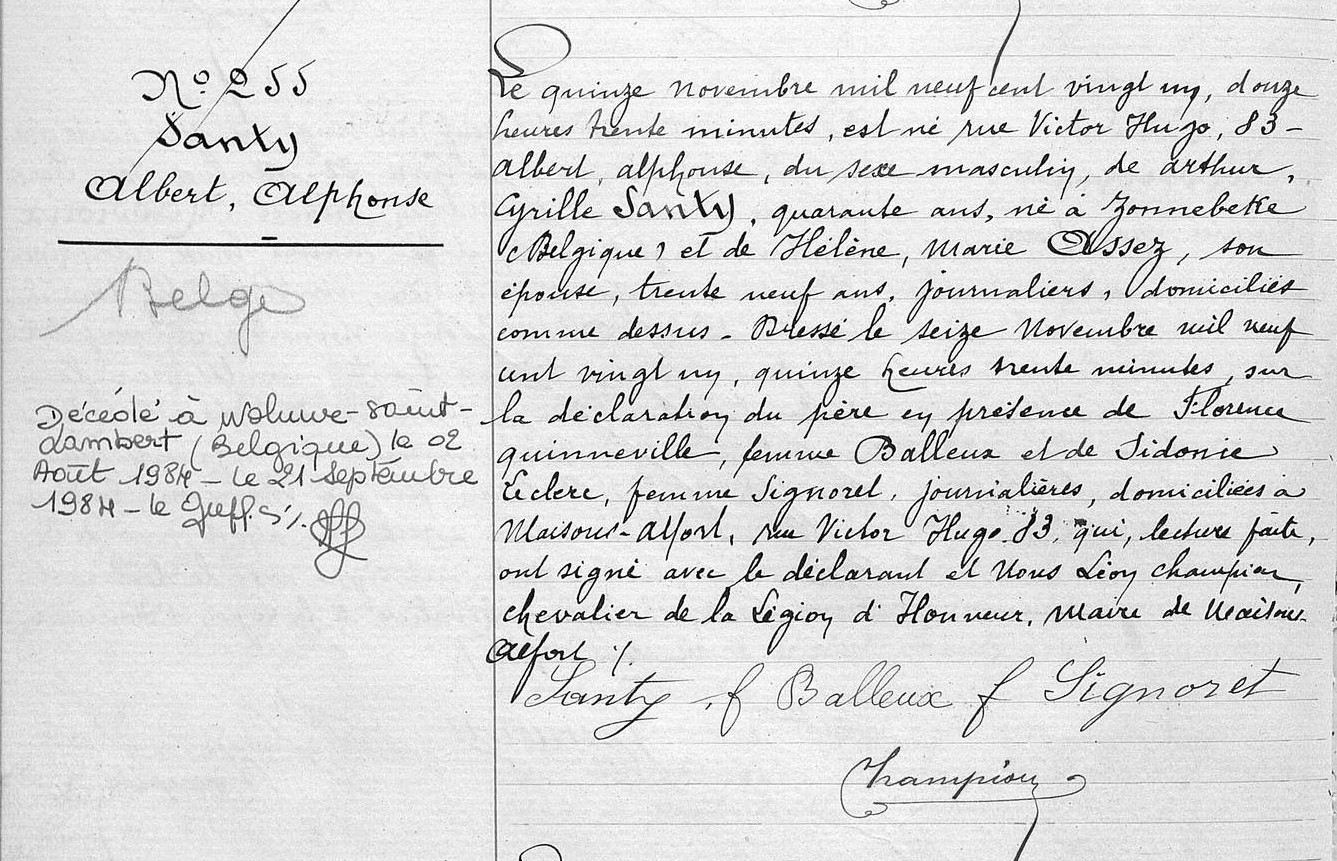 No 255
Santy
Albert, Alphonse
Belge
Décédé à Woluwe-Saint-
Lambert (Belgique) le 02
Août 1984 - le 21 Septembre
1984 - le Greff.
Le quinze novembre mil neuf cent vingt un, douze
heures trente minutes, est né rue Victor Hugo, 83 -
Albert, alphonse, du sexe masculin, de arthur,
Cyrille Santy, quarante ans, né à Zonnebeke
(Belgique) et de Hélène, Marie Assez, son
épouse, trente neuf ans, journaliers, domiciliés
comme dessus - Dressé le seize Novembre mil neuf
cent vingt un, quinze heures trente minutes, sur
la déclaration du père en présence de Florence
quinneville, femme Balleux et de Sidonie
Leclerc, femme Signoret, journalières, domiciliées à
Maisons-Alfort, rue Victor Hugo 83, qui, lecture faite,
ont signé avec le déclarant et Nous Léon Champion,
chevalier de la Légion d'Honneur, Maire de Maisons-
Alfort ./.
Santy f Balleux f Signoret
Champion